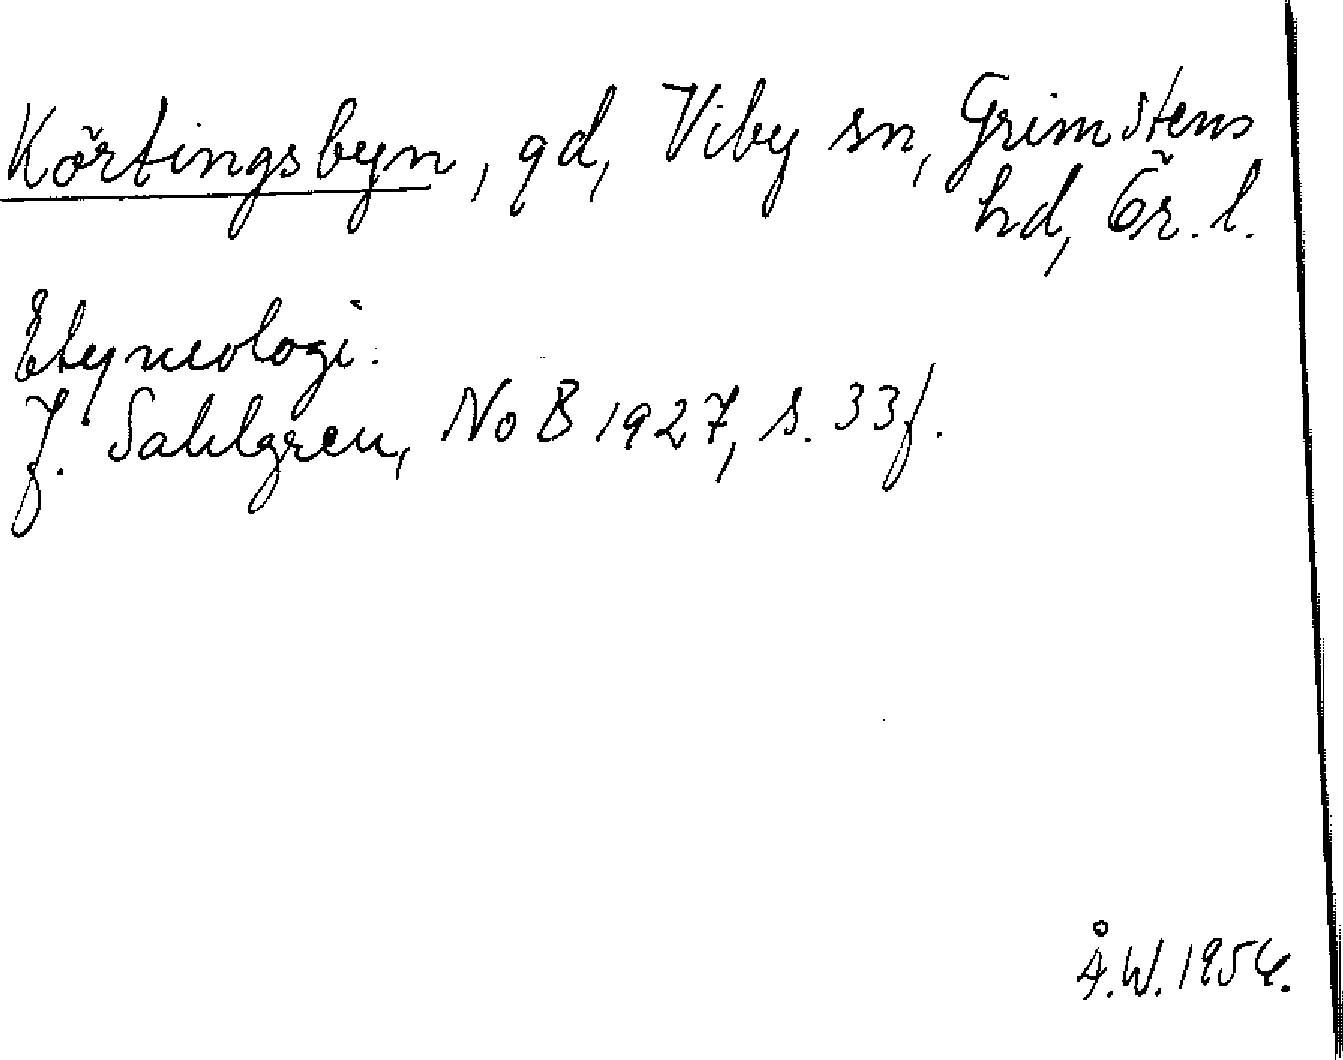 Körtingsbyn, gd, Viby sn, Grimstens
hd, Ör. l.
Etymologi:
J. Sahlgren, NoB 1927, s. 33f.
Å.W. 1954.